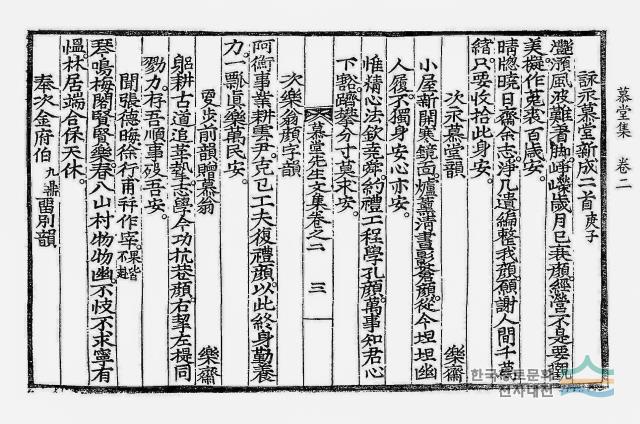 慕堂集 卷二
詠永慕堂新成二首 庚子
灩澦風波難著脚崢嶸歲月已衰顔經營不是要觀
美擬作菟裘百歲安
晴牕曉日齋余志淨几遺編整我顔願謝人間千萬
緖只要收拾此身安
次永慕堂韻 樂齋
小屋新開寒鏡面爐薰淸晝影蒼顔從今坦坦幽
人履不獨身安心亦安
惟精心法欽堯舜約禮工程學孔顔萬事知君心
下豁躋攀分寸莫求安
慕堂先生文集卷之二 三
次樂翁顔字韻
阿衡事業耕雲尹克己工夫復禮顔以此終身勤養
力一瓢眞樂萬民安
更步前韻贈慕翁 樂齋
躬耕古道追莘摯志學今功抗巷顔右挈左提同
勠力存吾順事歿吾安
聞張德晦徐行甫幷作宰 果皆不赴
琴鳴梅閣賢賢樂春八山村物物幽不忮不求寧有
慍林居端合保天休
奉次金府伯 九鼎 留別韻
한국유교문화
전자대전